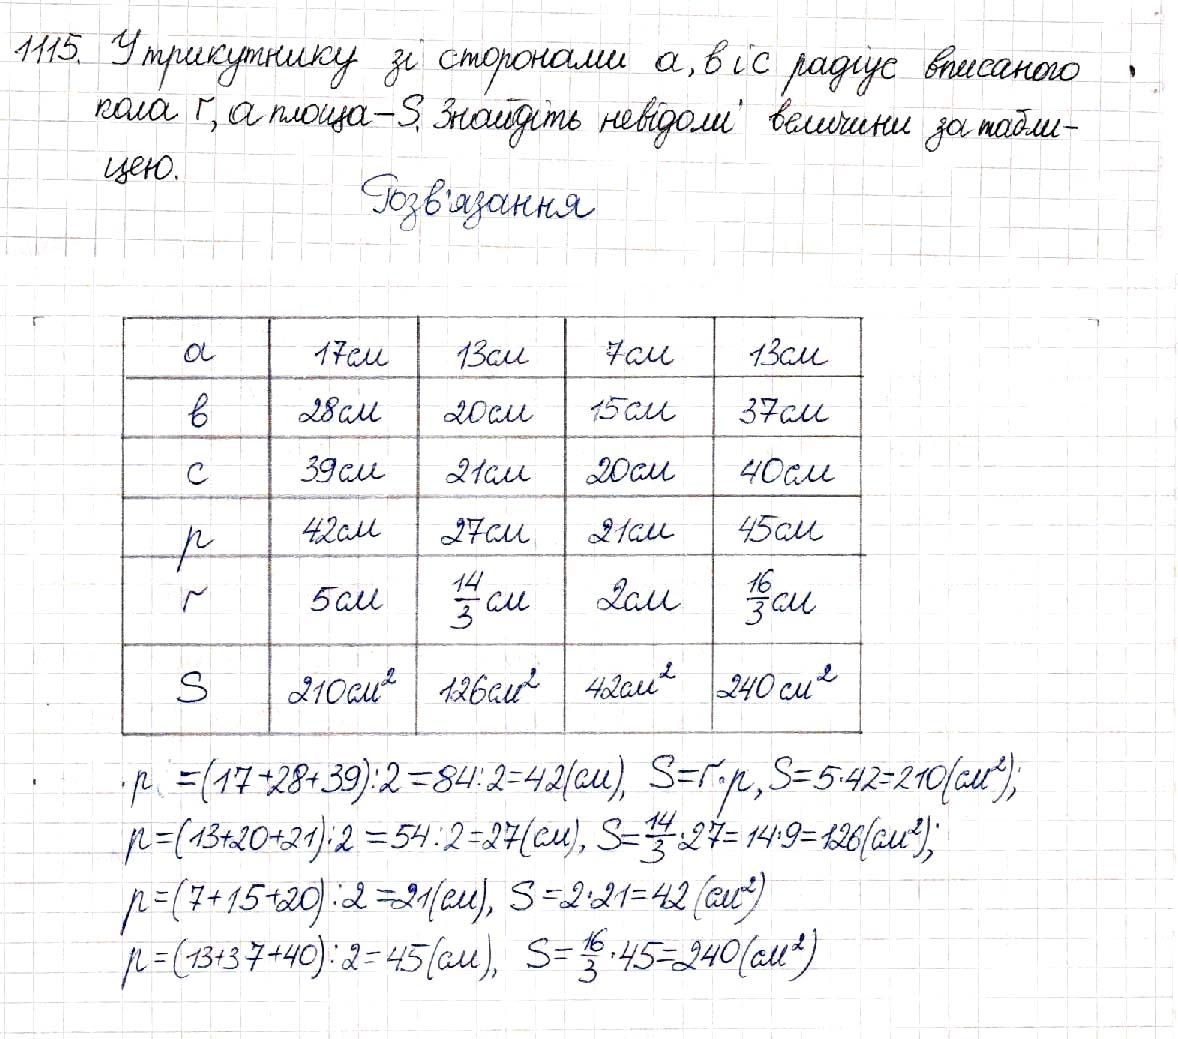 1115. У трикутнику зі сторонами a, в і с радіус вписаного
кола r, а площа – S. Знайдіть невідомі величини за табли-
цею.
Розв'язання
a 17см 13см 7см 13см
в 28см 20см 15см 37см
с 39см 21см 20см 40см
p 42см 27см 21см 45см
r 5см 14/3 см 2см 16/3 см
S 210см² 126см² 42см² 240см²
p = (17+28+39):2=84:2=42(см), S=r·p, S=5·42=210(см²);
p=(13+20+21):2=54:2=27(см), S=14/3·27=14·9=126(см²);
p=(7+15+20):2=21(см), S=2·21=42(см²)
p=(13+37+40):2=45(см), S=16/3·45=240(см²)